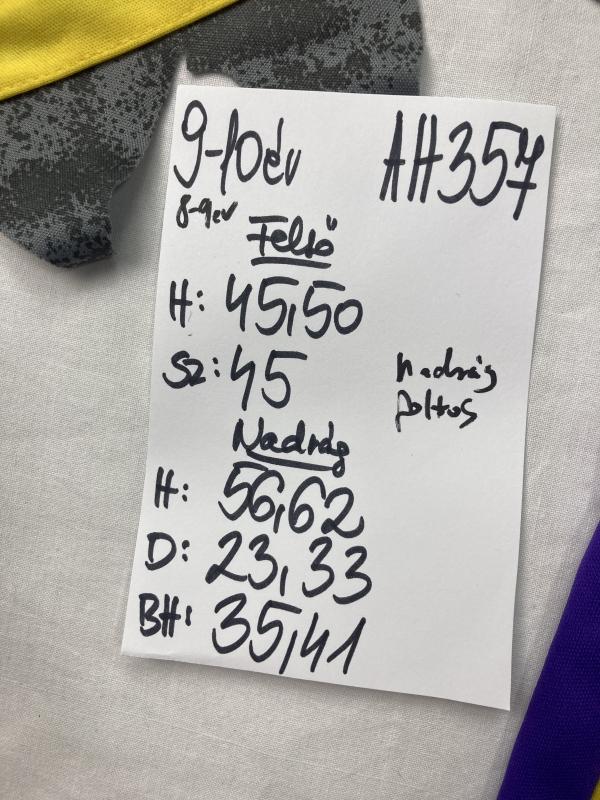 9-10év AH357
8-9év
Felső
H: 45,50
Sz: 45
nadrág
foltos
Nadrág
H: 56,62
D: 23,33
BH: 35,41